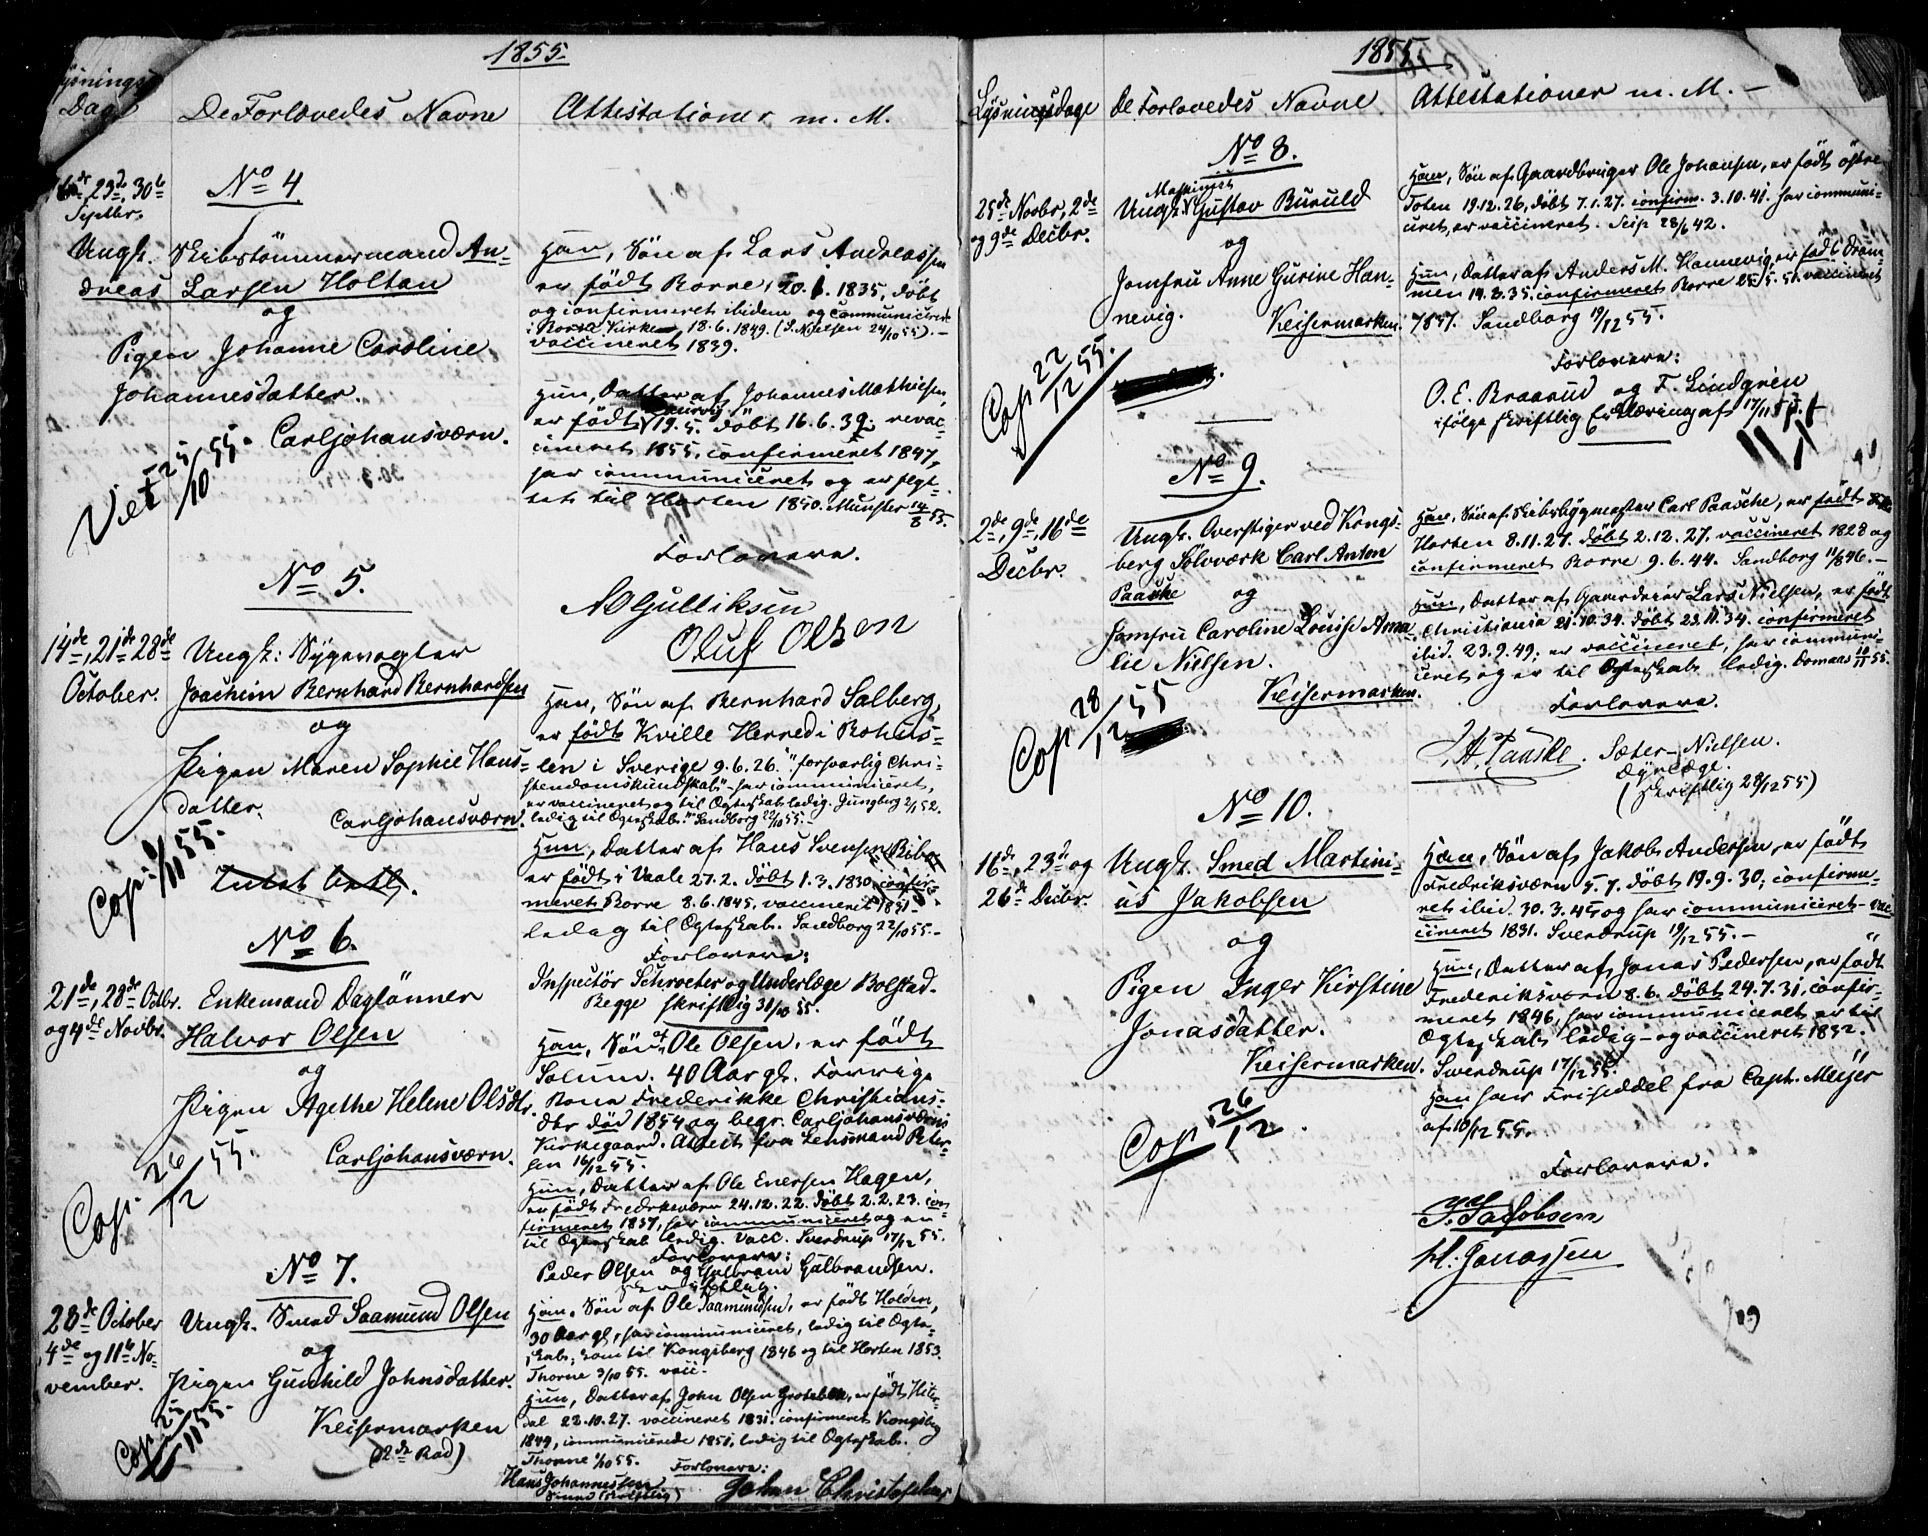 1855.
Lysnings
Dag
De Forlovedes Navne
Attestationer m. M.
16de 23de, 30te
Septbr.
No 4
Ungk. Skibstömmermand An-
dreas Larsen Holtan
og
Pigen Johanne Caroline
Johannesdatter.
Carljohansværn.
Viet 25/10 55.
Han, Sön af Lars Andreassen
er födt Borre, 20. 1. 1835, döbt
og confirmeret ibidem og communiceret
i Borre Kirke, 18.6.1849. (S. Nielsen 24/10 55). —
vaccineret 1839.
Hun, Datter af Johannes Mathiesen,
er födt 19.5. döbt 16.6.39; revac-
cineret 1855, confirmeret 1847,
har communiceret og er flyt-
tet til Horten 1850. Munster 14/8 55.
Forlovere.
A Gulliksen
Oluf Olsen
No 5.
14de, 21de 28de
October.
Ungk: Sygevogter
Joachim Bernhard Bernhardsen
og
Pigen Maren Sophie Hans-
datter.
Carljohansværn.
Cop. 1/11 55.
Han, Sön af Bernhard Salberg,
er födt Kville Herred i Bohus-
len i Sverige 9.6.26. "forsvarlig Chri-
stendomskundskab" – har communiceret,
er vaccineret og til Ægteskab ledig. Jungberg 2/1 52.
ledig til Ægteskab." Sandborg 22/10 55. –
Hun, Datter af Hans Svensen
er födt i Vaale 27.2. döbt 1.3.1830, confir-
meret Borre 8.6.1845, vaccineret 1831 –
ledig til Ægteskab. Sandborg 22/10 55. –
Forlovere:
Inspectör Schroeter og Underlæge Bolstad.
Begge skriftlig 31/10 55.
No 6.
21de, 28de Octbr.
og 4de Novbr.
Enkemand Daglönner
Halvor Olsen
og
Pigen Agethe Helene Olsdtr.
Carljohansværn.
Cop. 26/12 55.
Han, Sön af Ole Olsen, er födt
Solum. 40 Aar gl. Forrige
Kone Frederikke Christians-
dtr död 1854 og begr. Carljohansværns
Kirkegaard. Attest fra Lensmand Peter-
sen 16/12 55.
Hun, Datter af Ole Enersen Hagen,
er födt Fredriksværn 24.12.22. döbt 2.2.23. con-
firmeret 1837, har communiceret og er
til Ægteskab ledig. Vacc. Sverdrup 17/12 55.
Forlovere:
Peder Olsen og Gulbrand Gulbrandsen.
skriftlig.
No 7.
28de October
4de og 11te No-
vember.
Ungk. Smed Saamund Olsen
og
Pigen Gunhild Johnsdatter.
Keisermarken
(2de Rad)
Cop. 25/11 55.
Han, Sön af Ole Saamundsen, er födt Holden,
30 Aar gl, har communiceret, ledig til Ægte-
skab; kom til Kongsberg 1846 og til Horten 1853.
Thorne 9/10 55. vacc.
Hun, Datter af John Olsen, er födt Hit-
dal 22.10.27. vaccineret 1831. confirmeret Kongsberg
1849, communicerede 1851, ledig til Ægteskab.
Thorne 9/10 55.
Forlovere:
Hans Johannessen
Smed (skriftlig)
John Christophersen
1855.
Lysningsdage
De Forlovedes Navne
Attestationer m. M. –
No 8.
25de Novbr, 2de
og 9de Decbr.
Maskinist
Ungk. Gustav Buruld
og
Jomfru Anne Gurine Han-
nevig.
Keisermarken.
Cop 22/12 55.
Han, Sön af Gaardbruger Ole Johansen, er födt östre
Toten 19.12.26, döbt 7.1.27. confirm. 3.10.41. har communi-
ceret, er vaccineret. 28/6 42.
Hun, Datter af Anders M. Hannevig, er födt Dram-
men 14.8.35, confirmeret Borre 25/5. 51. vaccineret
Sandborg 19/12 55.
Forlovere:
O. E. Braarud og F. Lindgren
ifölge skriftlig Erklæring af 17/11 55.
No 9.
2de, 9de, 16de
Decbr.
Ungk. Overstiger ved Kongs-
berg Sölvværk Carl Anton
Paaske og
Jomfru Caroline Louise Ama-
lie Nielsen.
Keisermarken.
Cop 28/12 55
Han, Sön af Skibsbygmester Carl Paasche, er födt
Horten 8.11.27. döbt 2.12.27. vaccineret 1828 og
confirmeret Borre 9.6.44. Sandborg 11/8 46. –
Hun, Datter af Gaardeier Lars Nielsen, er födt
Christiania 21.10.34. döbt 23.11.34. confirmeret
ibid. 23.9.49; er vaccineret, har communi-
ceret og er til Ægteskab ledig. Domaas 10/11 55.
Forlovere.
Paaske. Sæter-Nielsen.
Dyrlæge.
(skriftlig 28/12 55)
No 10.
16de, 23de og
26de Decbr.
Ungk. Smed Martini-
us Jakobsen
og
Pigen Inger Kirstine
Jonasdatter.
Keisermarken.
Cop 26/12.
Han, Sön af Jakob Andersen, er födt
Fredriksværn 5.7. döbt 19.9.30; confirme-
ret ibid. 30.3.45 og har communiceret – vac-
cineret 1831. Sverdrup 19/12 55. –
Hun, Datter af Jonas Pedersen, er födt
Frederiksværn 8.6. döbt 24.7.31, confir-
meret 1846, har communiceret, er til
Ægteskab ledig – og vaccineret 1832.
Sverdrup 17/12 55.
Han har Friseddel fra Capt. Meyer
af 10/12 55.
Forlovere.
Jacobsen
H. Jonassen